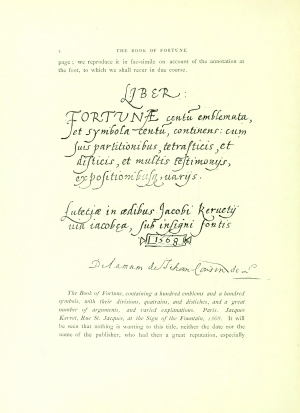 2 THE BOOK OF FORTUNE
page; we reproduce it in fac-simile on account of the annotation at
the foot, to which we shall recur in due course.
LIBER:
FORTUNÆ centũ emblemata,
et symbola centũ, continens: cum
suis partitionibus, tetrasticis, et
disticis, et multis testimonijs,
expositionibusq; varijs.
Lutetiæ in ædibus Jacobi Kervetij
via iacobea, sub insigni fontis
1568
The Book of Fortune, containing a hundred emblems and a hundred
symbols, with their divisions, quatrains, and distiches, and a great
number of arguments, and varied explanations. Paris. Jacques
Kervet, Rue St. Jacques, at the Sign of the Fountain, 1568. It will
be seen that nothing is wanting to this title, neither the date nor the
name of the publisher, who had then a great reputation, especially